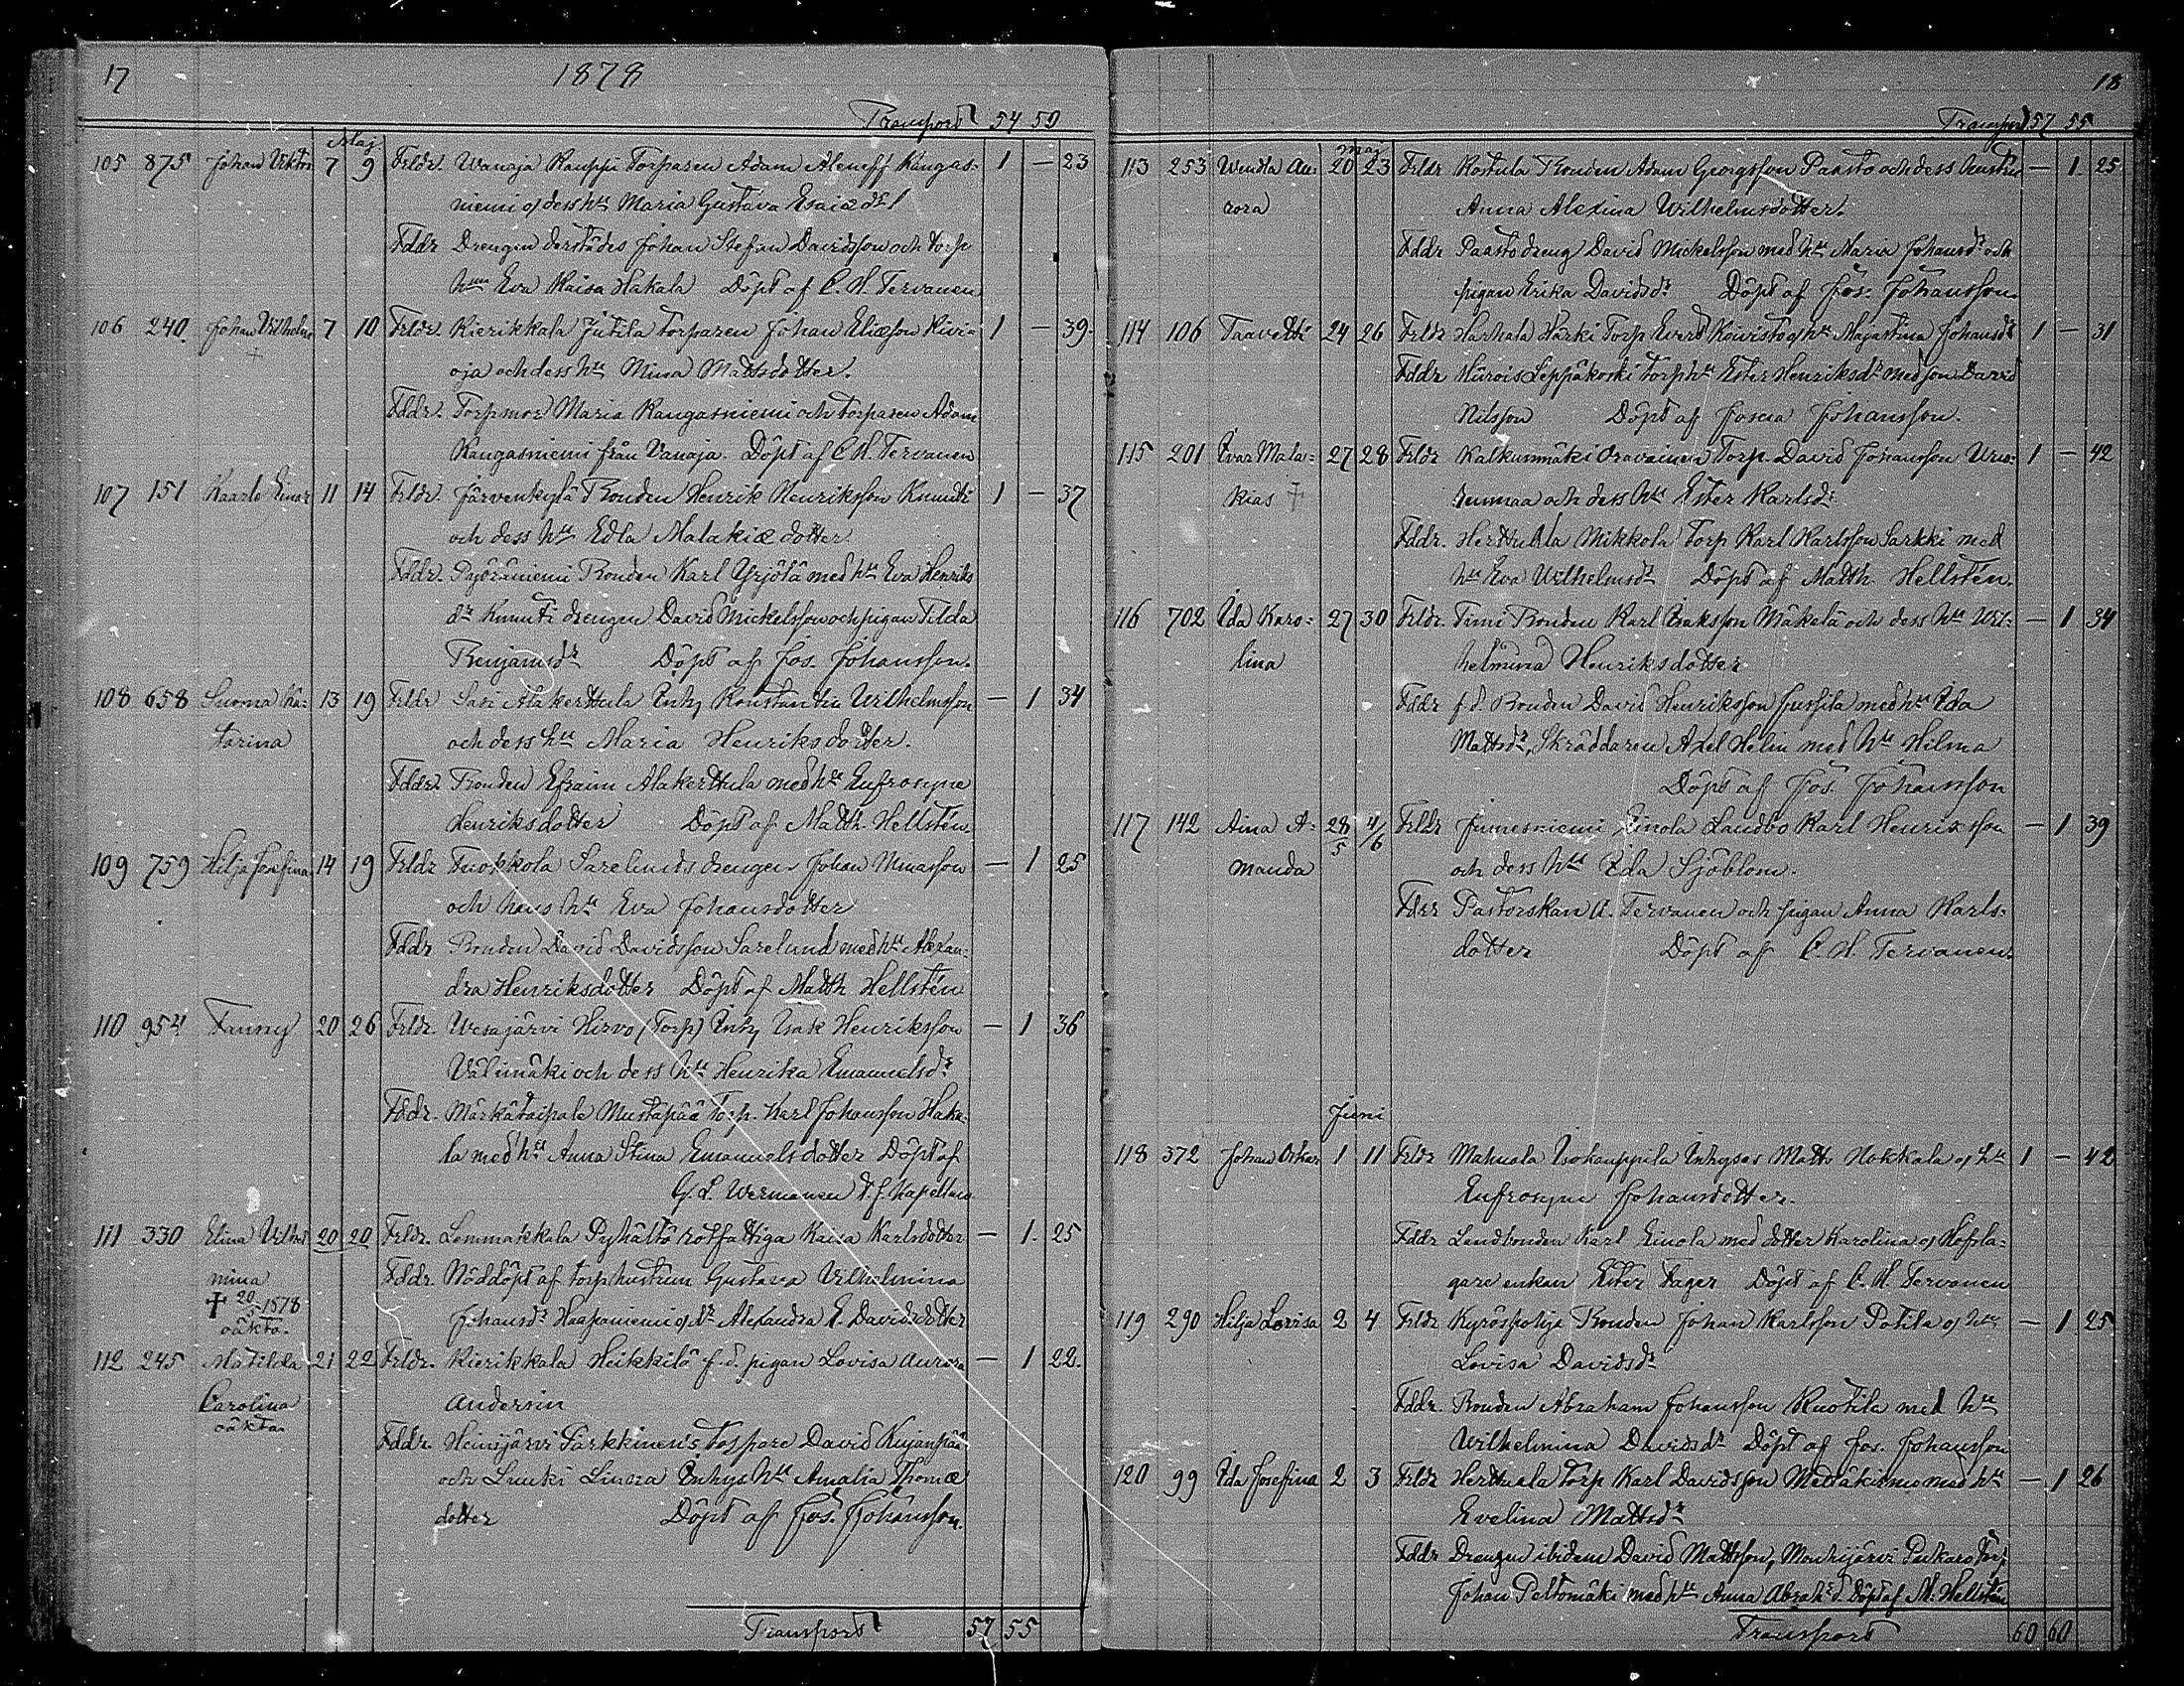 17 1878
Transport 54 50
Maj
105 875 Johan Viktor 7 9 Frldr. Wanaja Kauppi Torparen Adam Aleneff Kangas- 1 — 23
niemi o/ dess hu Maria Gustava Esaiædr
Fddr Drengen derstädes Johan Stefan Davidsson och torp
hun Eva Kaisa Hakala Döpt af C. H. Tervanen
106 240. Johan Vilhelm 7 10 Frldr. Kierikkala Jutila torparen Johan Eliæson Kivi- 1 — 39.
+ oja och dess hu Mina Mattsdotter.
Fddr. Torpmor Maria Kangasniemi och torparen Adam
Kangasniemi från Vanaja. Döpt af C H. Tervanen
107 151 Kaarle Einar 11 14 Frldr. Järvenkylä Bonden Henrik Henriksson Knuuti 1 — 37
och dess hu Edla Malakiæ dotter
Fddr. Pajöräniemi Bonden Karl Yrjölä med hu Eva Henriks
dr Knuuti drengen David Mickelsson och pigan Tilda
Benjamsdr Döpt af Jos. Johansson.
108 658 Suoma Ka- 13 19 Frldr Sasi Alakerttula Inhy Konstantin Vilhelmsson — 1 34
tarina och dess hu Maria Henriksdotter.
Fddr. Bonden Efraim Alakerttula med hu Eufrosyne
Henriksdotter Döpt af Matth Hellstén.
109 759 Hilja Josefina 14 19 Frldr Tuokkola Sarelunds drengen Johan — 1 25
och hans hu Eva Johansdotter
Fddr Bonden David Davidsson Sarelund med hu Alexan-
dra Henriksdotter Döpt af Matth Hellstén
110 954 Fanny 20 26 Frldr. Wesajärvi Hirvo (Torp) Inhy Isak Henriksson — 1 36
Välimäki och dess hu Henrika Emanuelsdr
Fddr. Märkätaipale Mustapää Torp. Karl Johansson Haka-
la med hu Anna Stina Emanuelsdotter Döpt af
G. L. Wermanen t. f. Kapellan
111 330 Elina Vilhel 20 20 Frldr. Lemmakkala Pyhältö rotfattiga Kaisa Karlsdotter — 1. 25
mina Fddr. Nöddöpt af torphustrun Gustava Vilhelmina
+ 20/5 1878 Johansdr Haapaniemi o/ dr Alexandra E. Davidsdotter
oäkta.
112 245 Matilda 21 22 Frldr. Kierikkala Heikkilä f. d. pigan Lovisa Aurora — 1 22.
Carolina Andersin
oäkta. Fddr. Heinijärvi Särkkinen's torpare David Kujanpää
och Suuki Linoza Inhys hu Amalia Thomæ
dotter Döpt af Jos. Johansson.
Transport 57 55
18
Transport 57 55
Maj
113 253 Wendla Au- 20 23 Frldr Kostula Bonden Adam Georgsson Paasto och dess hustru — 1. 25
rora Anna Alexina Wilhelmsdotter.
Fddr Paasto dreng David Mickelsson med hu Maria Johansdr och
pigan Erika Davidsdr Döpt af Jos. Johansson.
114 106 Taavetti 24 26 Frldr Harhala Härki Torp Evert Koivisto o/ hu Majastina Johansdr 1 — 31
Fddr Hurois Leppäkoski torp hu Ester Henriksdr med son David
Nilsson Döpt af Josua Johansson.
115 201 Ivar Mala- 27 28 Frldr Kalkunmäki Oravainen Torp. David Johansson Uu- 1 — 42
kias + denmaa och dess hu Ester Karlsdr
Fddr. Herttuala Mikkola torp Karl Karlsson Sarkki med
hu Eva Wilhelmsdr Döpt af Matth. Hellstén.
116 702 Ida Karo- 27 30 Frldr. Timi Bonden Karl Isaksson Mäkelä och dess hu Vil- — 1 34
lina helmina Henriksdotter
Fddr f. d. Bonden David Henriksson Jussila med hu Ida
Mattsdr, Skräddaren Axel Helin med hu Hilma
Döpt af Jos. Johansson
117 142 Aina A- 28/5 4/6 Frldr Jumesniemi Einola Landbo Karl Henriksson — 1 39
manda och dess hu Ida Sjöblom.
Fddr Pastorskan A. Tervanen och pigan Anna Karls-
dotter Döpt af C. H. Tervanen.
Juni
118 372 Johan Oskar 1 11 Frldr Mahnala Isokauppila Inhyses Matts Hokkala o/ hu 1 — 42
Eufrosyne Johansdotter.
Fddr Landbonden Karl Einola med dotter Karolina o/ Hofsla-
gare enkan Ester Fager Döpt af C. H. Tervanen
119 290 Hilja Lovisa 2 4 Frldr Kyröspohja Bonden Johan Karlsson Potila o/ hu — 1 25
Lovisa Davidsdr
Fddr. Bonden Abraham Johansson Knotila med hu
Wilhelmina Davidsdr Döpt af Jos. Johansson
120 99 Ida Josefina 2 3 Frldr Herttuala Torp Karl Davidsson Metsäkinno med hu — 1 26
Evelina Mattsdr
Fddr Drengen ibidem David Mattsson, Mouhijärvi Pukara torp
Johan Peltomäki med hu Anna Abrah.d. Döpt af M. Hellstén
Transport 60 60